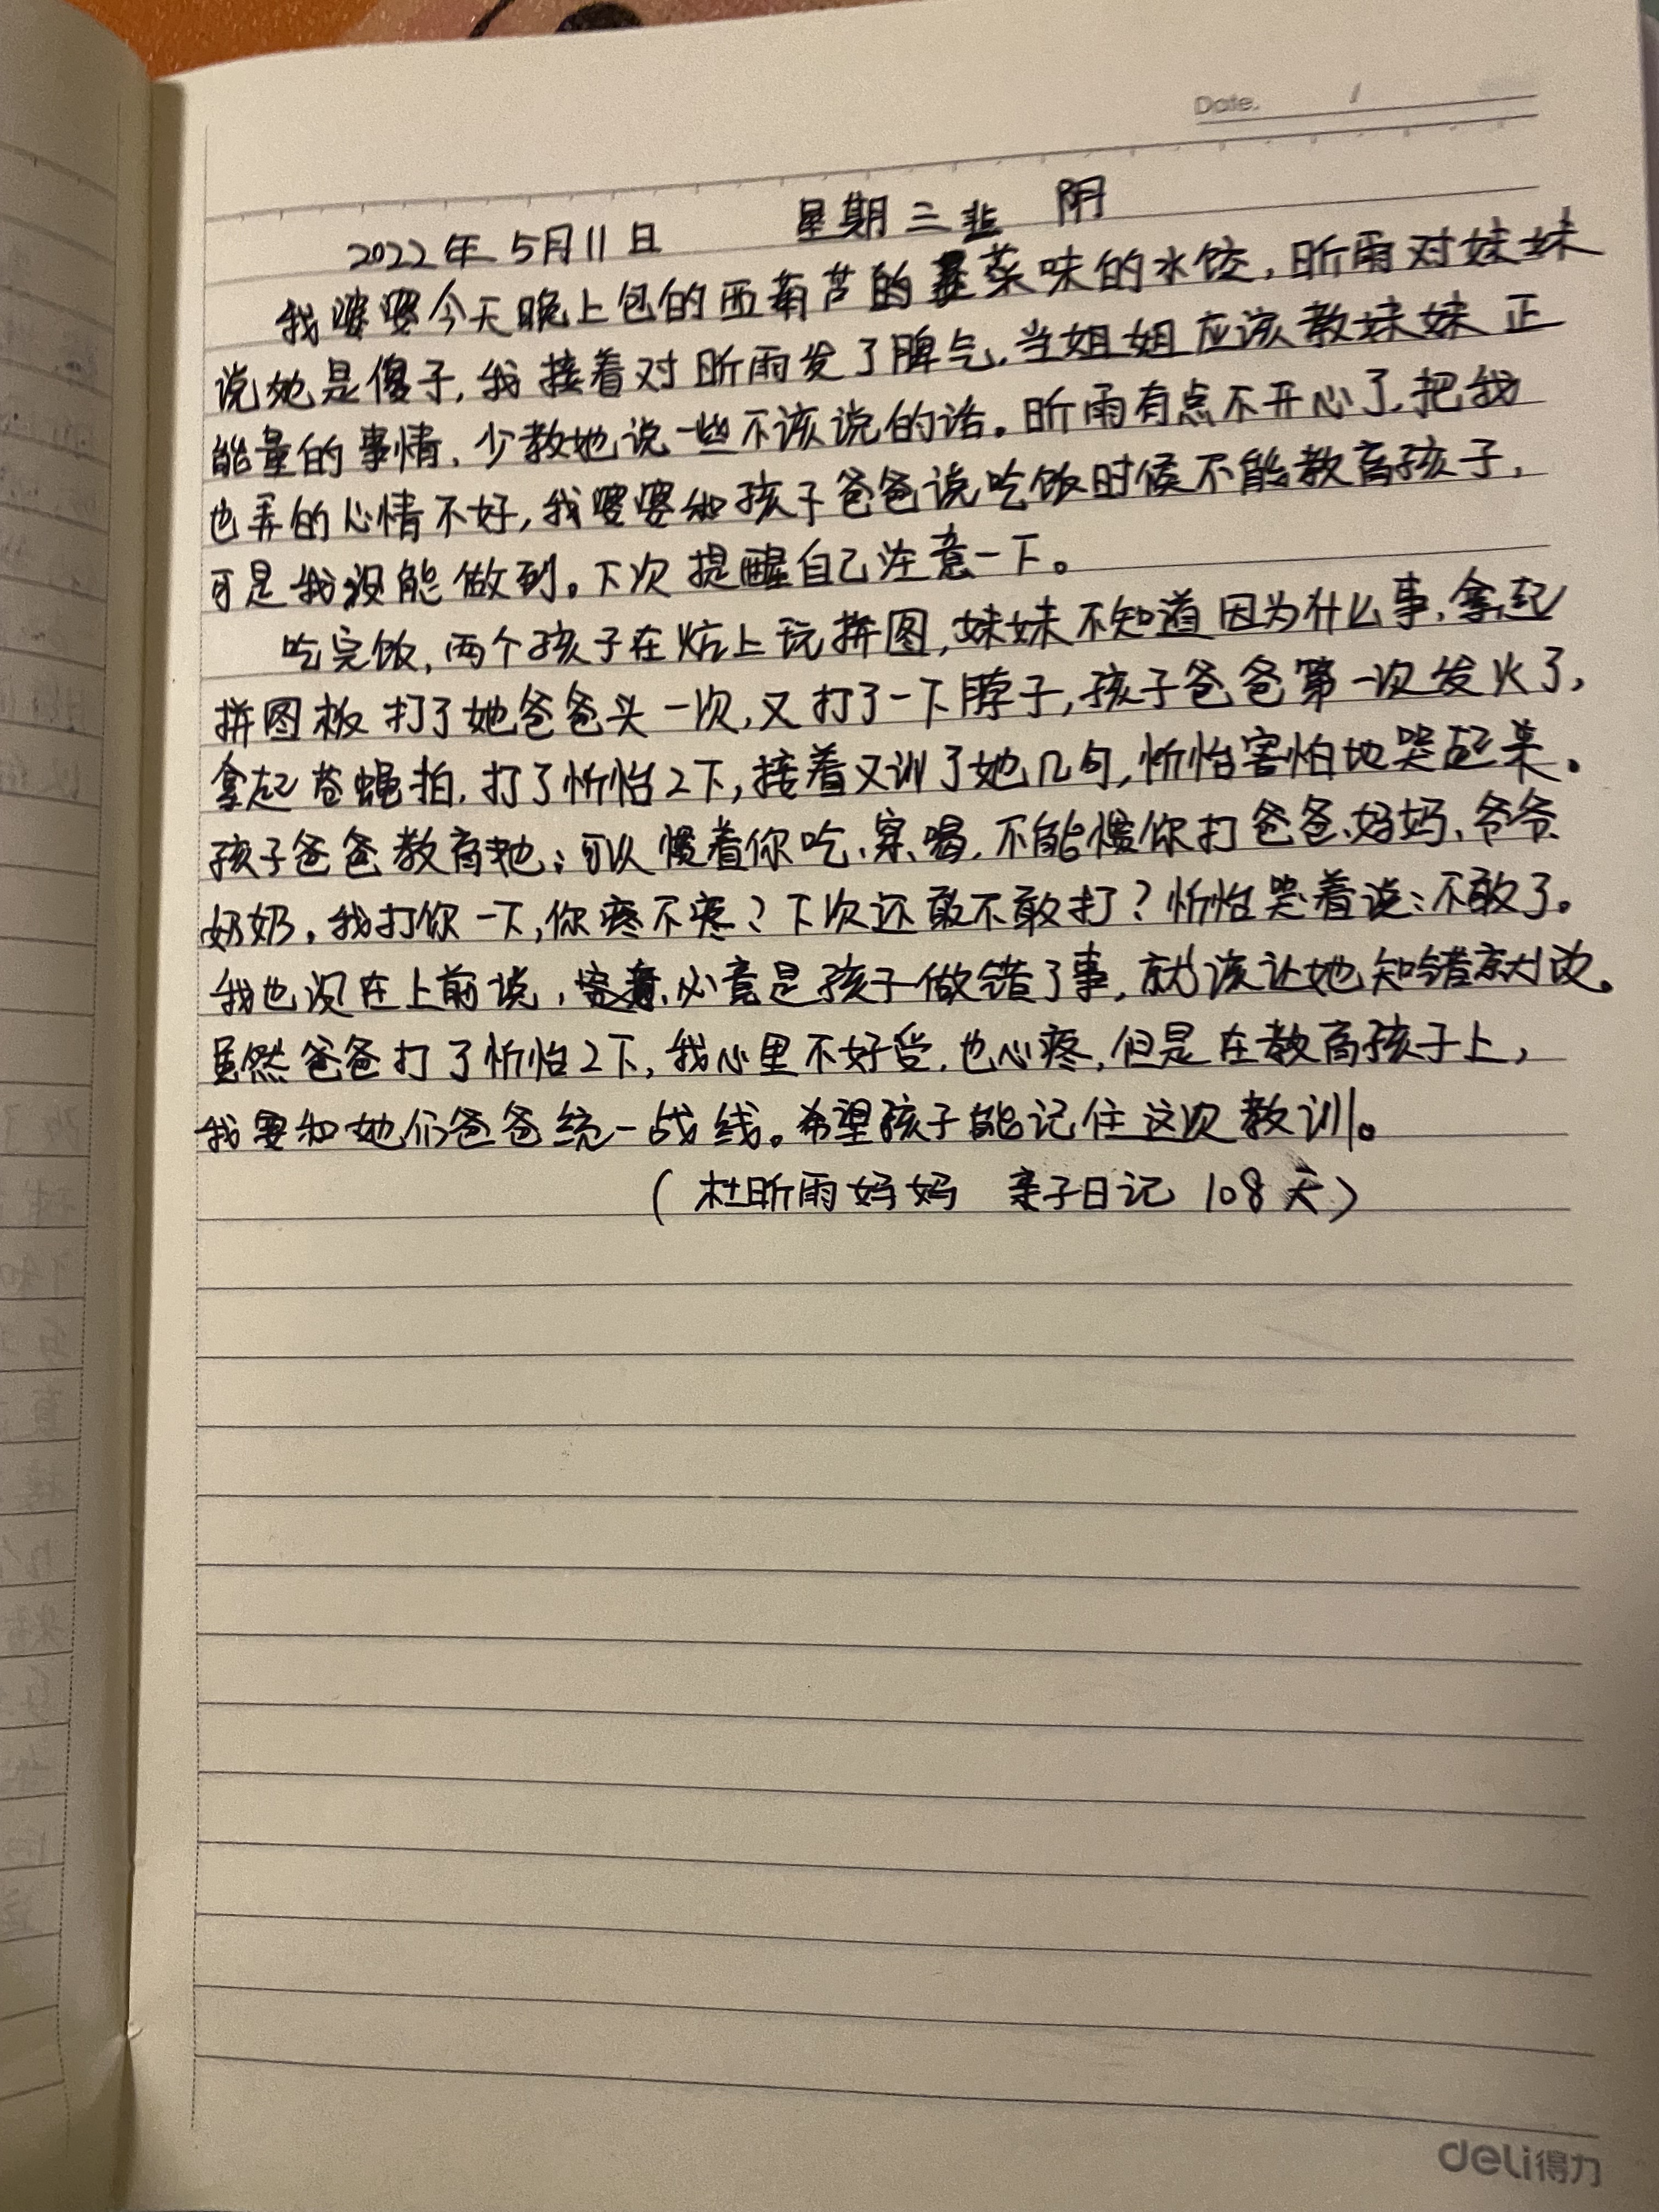 Date.
2022年5月11日 星期三 韭 阴
我婆婆今天晚上包的西葫芦的韭菜味的水饺,昕雨对妹妹
说她是傻子,我接着对昕雨发了脾气,当姐姐应该教妹妹正
能量的事情,少教她说一些不该说的话。昕雨有点不开心了,把我
也弄的心情不好,我婆婆和孩子爸爸说吃饭时候不能教育孩子,
可是我没能做到。下次提醒自己注意一下。
吃完饭,两个孩子在炕上玩拼图,妹妹不知道因为什么事,拿起
拼图板打了她爸爸头一次,又打了一下脖子,孩子爸爸第一次发火了,
拿起苍蝇拍,打了忻怡2下,接着又训了她几句,忻怡害怕地哭起来。
孩子爸爸教育她:可以惯着你吃、穿、喝,不能惯你打爸爸、妈妈、爷爷、
奶奶。我打你一下,你疼不疼?下次还敢不敢打?忻怡哭着说:不敢了。
我也没在上前说,必竟是孩子做错了事,就该让她知错就改。
虽然爸爸打了忻怡2下,我心里不好受,也心疼,但是在教育孩子上,
我要和她们爸爸统一战线。希望孩子能记住这次教训。
(杜昕雨妈妈 亲子日记 108天)
deli得力